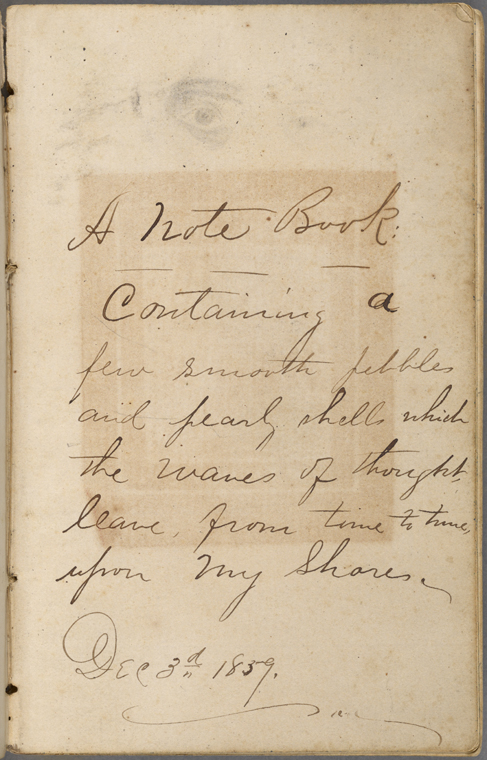 A Note Book.
Containing a
few smooth pebbles
and pearly shells which
the waves of thought,
leave, from time to time,
upon my Shores.
Dec 3d 1859.